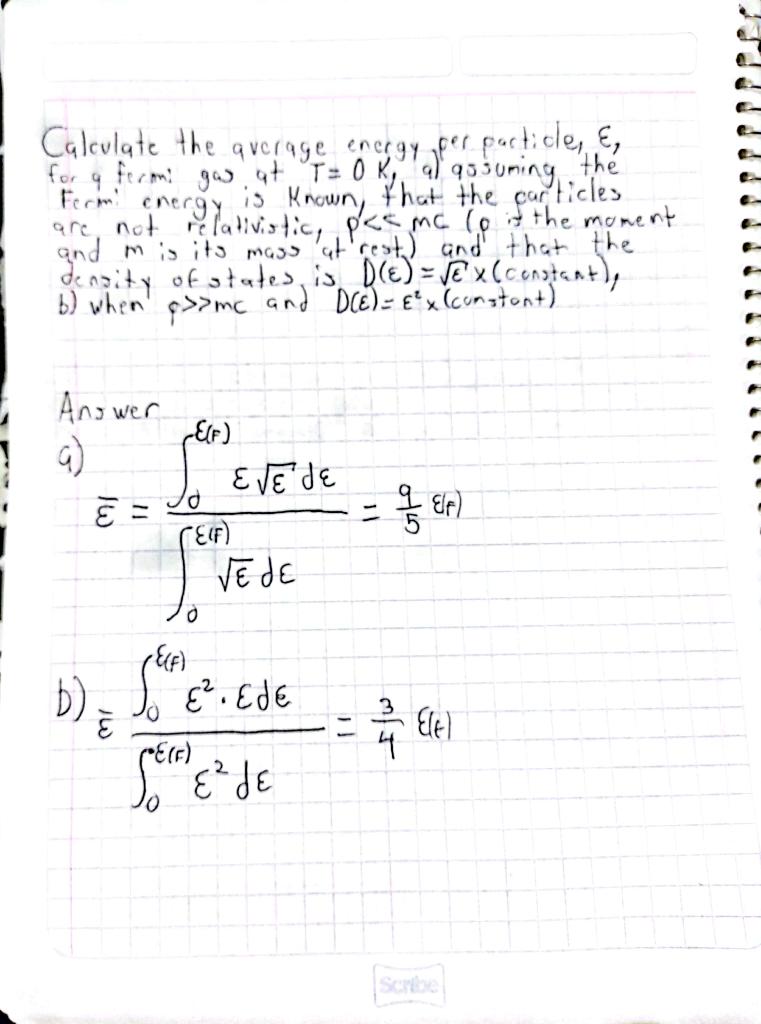 Calculate the average energy per particle, ε,
for a fermi gas at T = 0 K, a) assuming the
Fermi energy is Known, that the particles
are not relativistic, p<< mc (p is the moment
and m is its mass at rest) and that the
density of states, is D(ε) = √ε x (constant),
b) when p>>mc and D(ε) = ε² x (constant)
Answer
a)
ε̄ = ∫₀^ε(F) ε √ε dε / ∫₀^ε(F) √ε dε = 9/5 ε(F)
b) ε̄ ∫₀^ε(F) ε² · ε dε / ∫₀^ε(F) ε² dε = 3/4 ε(F)
Scribe